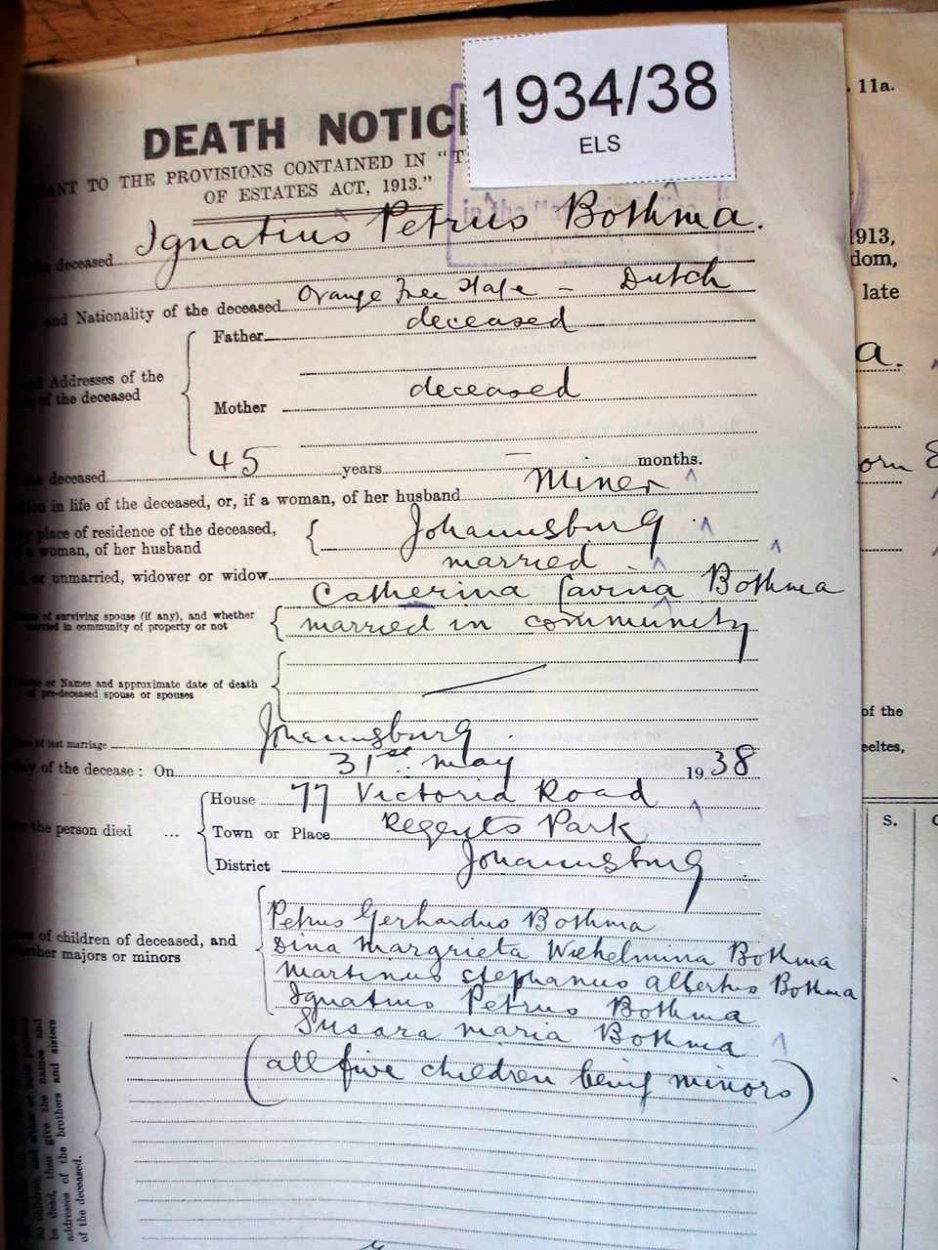 1934/38
ELS
11a.
DEATH NOTIC
TO THE PROVISIONS CONTAINED IN "T
OF ESTATES ACT, 1913."
Ignatius Petrus Bothma.
deceased
and Nationality of the deceased Orange Free State - Dutch
Father deceased
Addresses of the
of the deceased
Mother deceased
deceased 45 years - months.
in life of the deceased, or, if a woman, of her husband Miner
place of residence of the deceased,
woman, of her husband
Johannsburg
or unmarried, widower or widow married
of surviving spouse (if any), and whether
in community of property or not
Catherina Lavina Bothma
married in community
or Names and approximate date of death
pre-deceased spouse or spouses
of last marriage Johannsburg.
of the decease: On 31st May 1938
House 77 Victoria Road
the person died ... Town or Place Regents Park
District Johannsburg
of children of deceased, and
majors or minors
Petrus Gerhardus Bothma
Dina Margrieta Wilhelmina Bothma
Martinus Stephanus Albertus Bothma
Ignatius Petrus Bothma
Susara Maria Bothma
(all five children being minors)
be dead, then give the names and
addresses of the brothers and sisters
of the deceased.
1913,
dom,
late
a.
orn
of the
eeltes,
S.